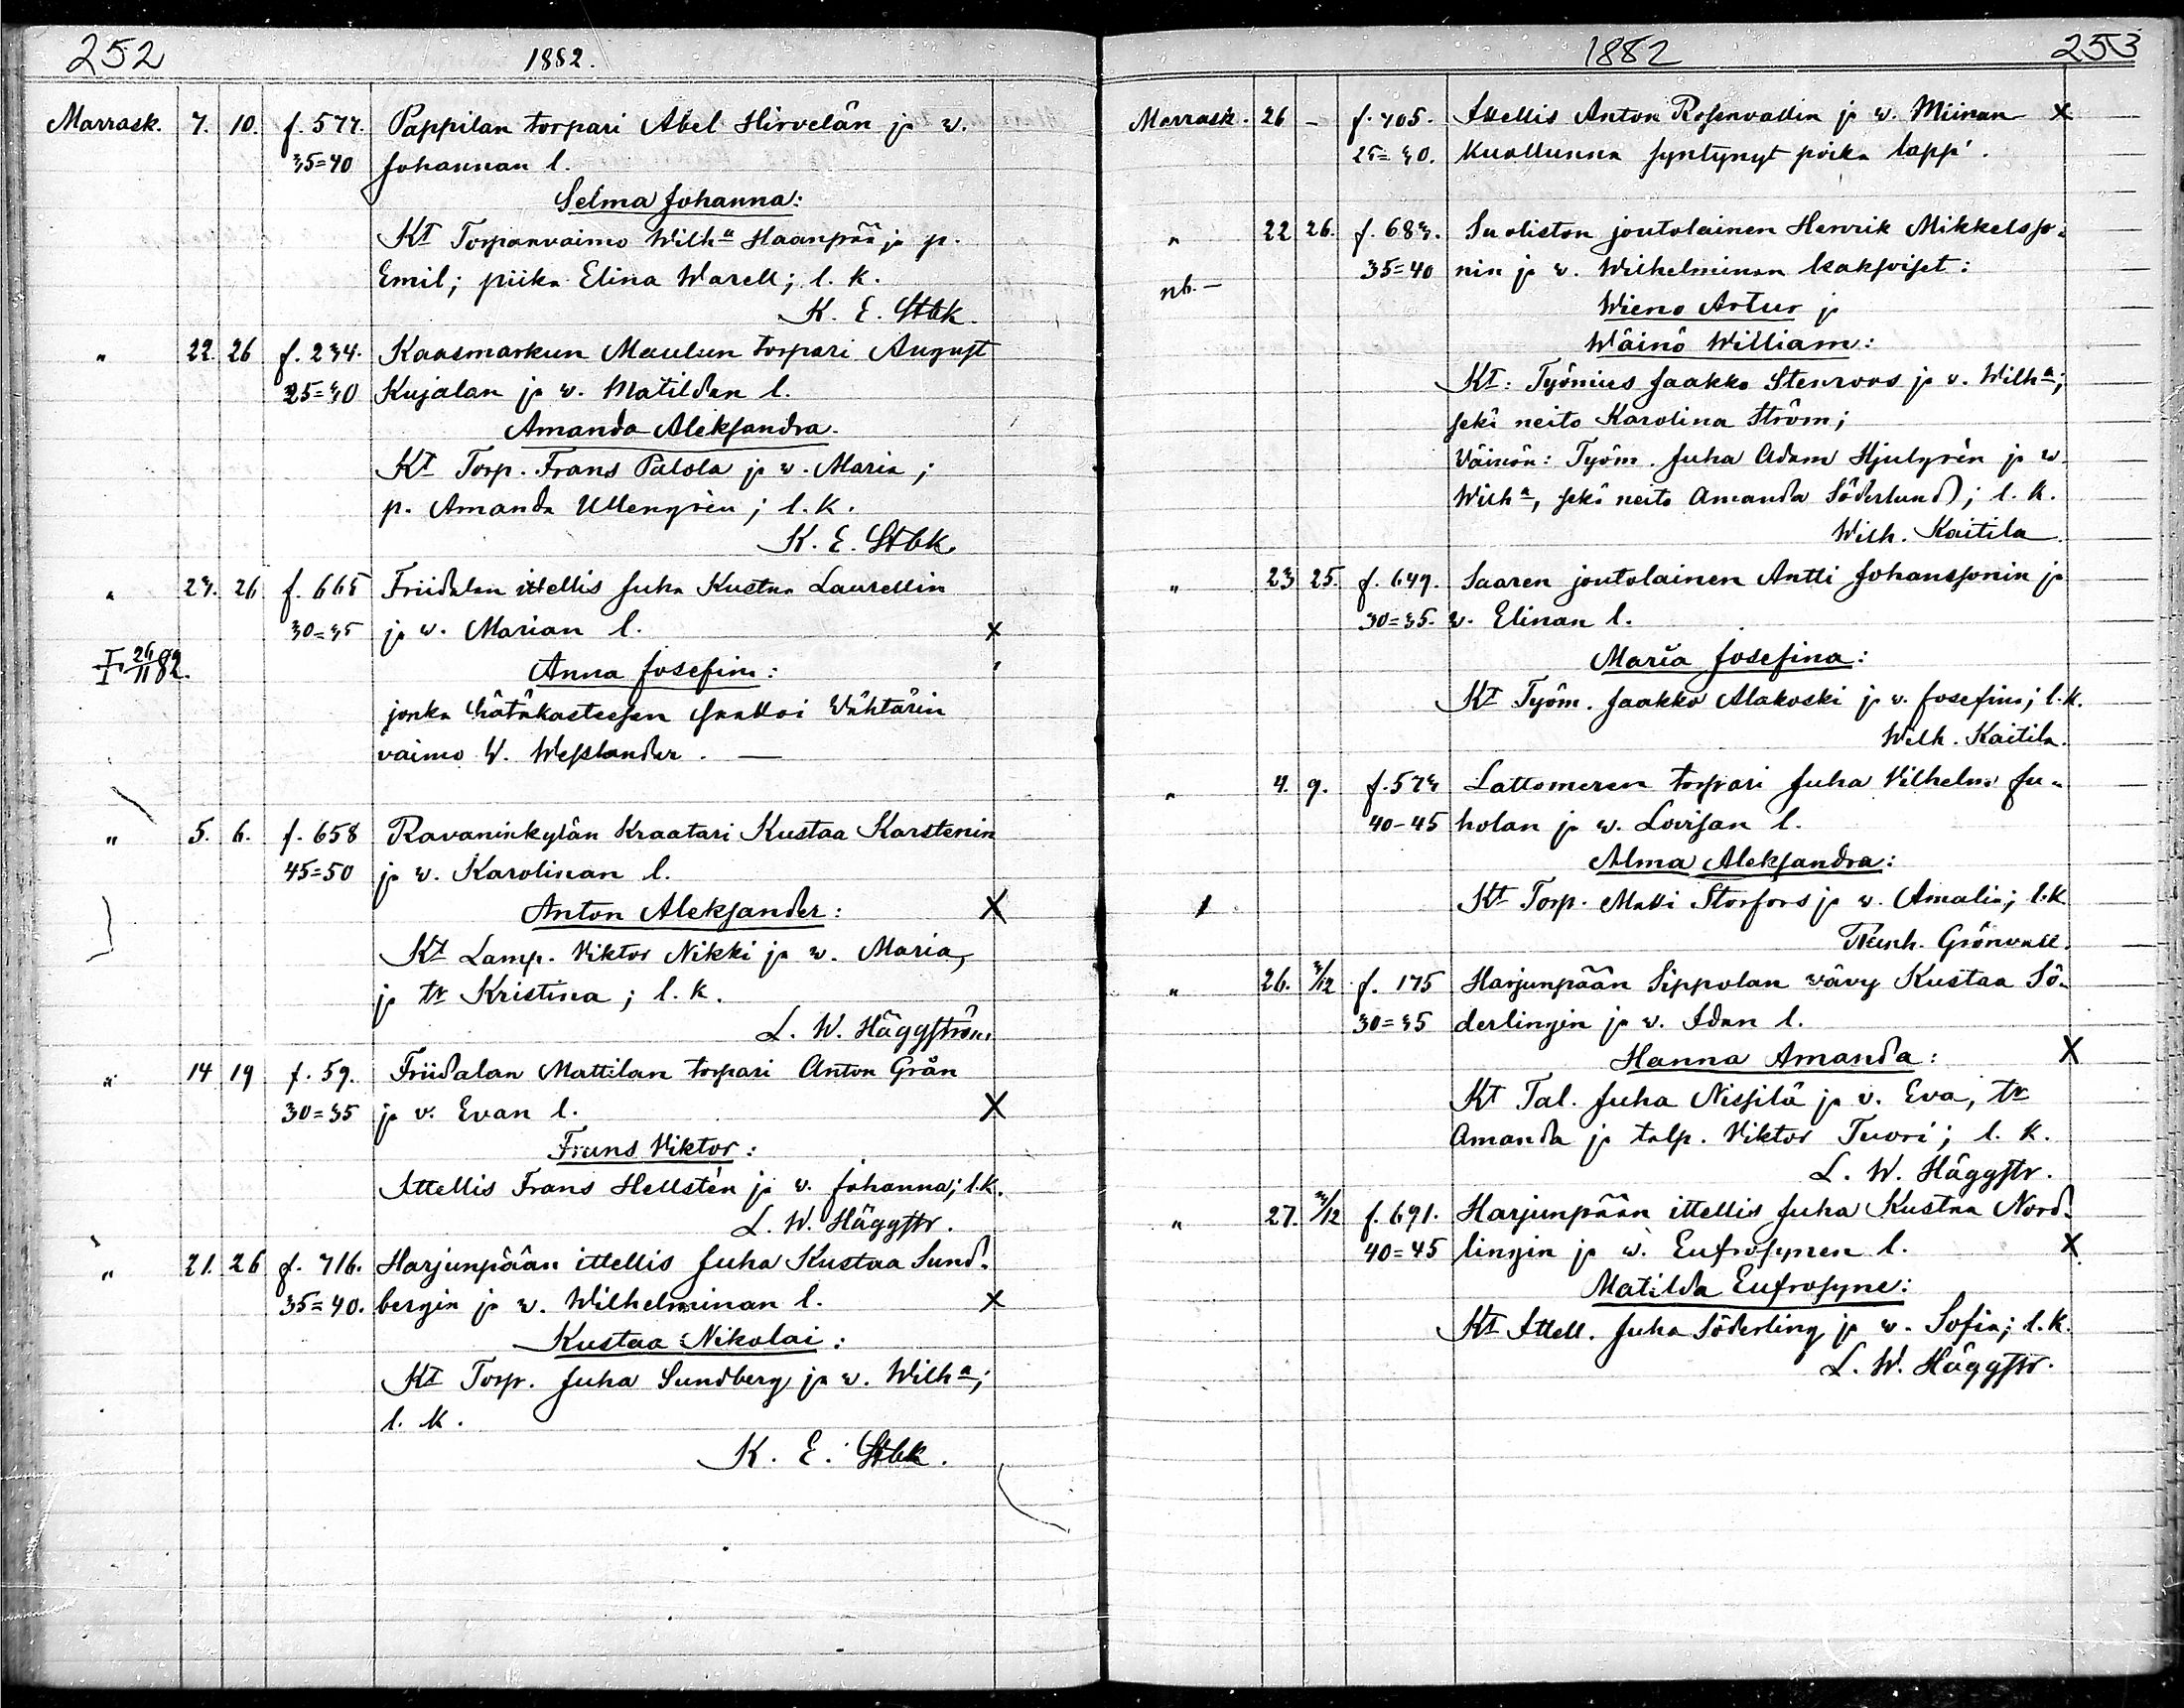 252
1882.
Marrask. 7. 10. f. 577. Pappilan torpari Abel Hirvelän ja w.
35=40 Johannan l.
Selma Johanna:
Kt Torparvaimo Wilha Haanpää ja p.
Emil; piika Elina Warell; l. k.
K. E. Stbk.
" 22. 26 f. 234. Kaasmarkun Maulan torpari August
25=30 Kujalan ja w. Matildan l.
Amanda Aleksandra.
Kt Torp. Frans Palola ja w. Maria;
p. Amanda Ullengrén; l. k.
K. E. Stbk.
" 23. 26 f. 665 Friidalan ittellis Juha Kustaa Laurellin
30=35 ja w. Marian l. X
26/11 82. Anna Josefina:
jonka hätäkasteessen saattoi Vähtärin
vaimo W. Wesslander. —
" 5. 6. f. 658 Ravaninkylän Kraatari Kustaa Karstenin
45=50 ja w. Karolinan l.
Anton Aleksander: X
Kt Lamp. Viktor Nikki ja w. Maria,
ja tr Kristina; l. k.
L. W. Häggström.
" 14 19 f. 59. Friidalan Mattilan torpari Anton Grän
30=35 ja v. Evan l. X
Frans Viktor:
Ittellis Frans Hellstén ja w. Johanna; l.k.
L. W. Häggstr.
" 21. 26 f. 716. Harjunpään ittellis Juha Kustaa Sund-
35=40. bergin ja w. Wilhelminan l. X
Kustaa Nikolai:
Kt Torp. Juha Sundberg ja w. Wilha;
l. k.
K. E. Stbk.
1882
253
Marrask. 26 – f. 705. Ittellis Anton Rosenvallin ja w. Miinan X
25=30. kuolluna syntynyt poika lapsi.
" 22 26. f. 683. Suoliston joutolainen Henrik Mikkelsso-
nb.— 35=40 nin ja w. Wilhelminan kaksoiset:
Wieno Artur ja
Wäinö William:
Kt: Työmies Jaakko Stenroos ja v. Wilha;
sekä neito Karolina Ström;
Väinön: Työm. Juha Adam Hjulgrén ja w.
Wilha, sekä neito Amanda Söderlund; l. k.
Wilh. Kaitila.
" 23 25. f. 649. Saaren joutolainen Antti Johanssonin ja
30=35. w. Elinan l.
Maria Josefina:
Kt Työm. Jaakko Alakoski ja v. Josefina; l.k.
Wilh. Kaitila.
" 4. 9. f. 573 Lattomeren torpari Juha Vilhelm Ju-
40-45 holan ja w. Lovisan l.
Alma Aleksandra:
Kt Torp. Matti Storfors ja w. Amalia; l.k
Grönvall.
" 26. 3/12 f. 175 Harjunpään Sippolan vävy Kustaa Sö-
30=35 derlingin ja w. Idan l.
Hanna Amanda: X
Kt Tal. Juha Nissilä ja v. Eva, tr
Amanda ja talp. Viktor Tuori; l. k.
L. W. Häggstr.
" 27. 3/12 f. 691. Harjunpään ittellis Juha Kustaa Nord-
40=45 lingin ja w. Eufrosynen l. X
Matilda Eufrosyne:
Kt Ittell. Juha Söderling ja w. Sofia; l.k.
L. W. Häggstr.